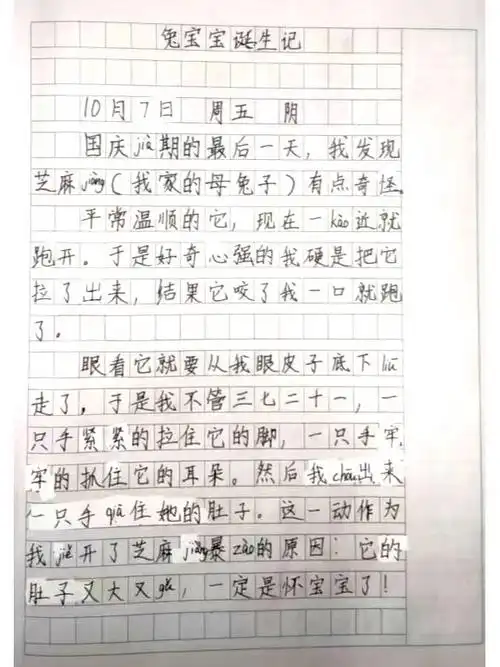 兔宝宝诞生记
10月7日 周五 阴
国庆jià期的最后一天，我发现
芝麻jiàng（我家的母兔子）有点奇怪
平常温顺的它，现在一kào近就
跑开。于是好奇心强的我硬是把它
拉了出来，结果它咬了我一口就跑
了。
眼看它就要从我眼皮子底下liū
走了，于是我不管三七二十一，一
只手紧紧的拉住它的脚，一只手牢
牢的抓住它的耳朵。然后我chōu出来
一只手qiā住她的肚子。这一动作为
我jiě开了芝麻jiàng暴zào的原因：它的
肚子又大又gǔ，一定是怀宝宝了！